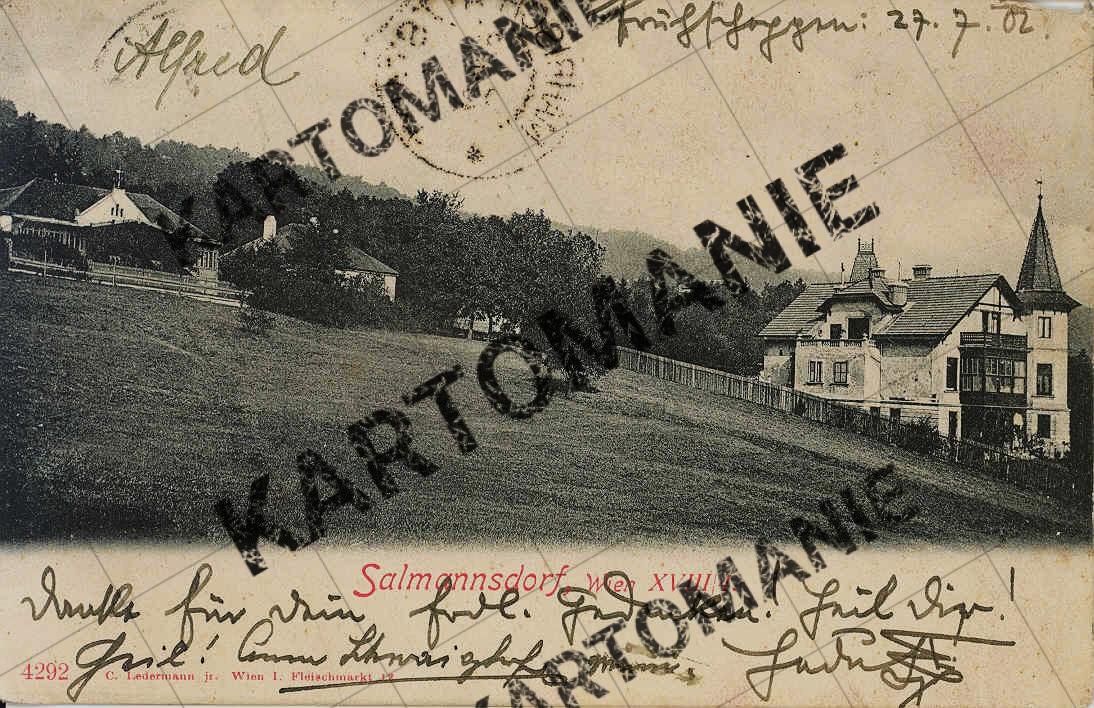 Alfred
Frühschoppen: 27. 7. 02.
KARTOMANIE
KARTOMANIE
KARTOMANIE
Salmannsdorf, Wien XVIII/1
Danke für Dein frdl. Gedenken! Heil Dir!
Heil!
4292 C. Ledermann jr. Wien I. Fleischmarkt 12